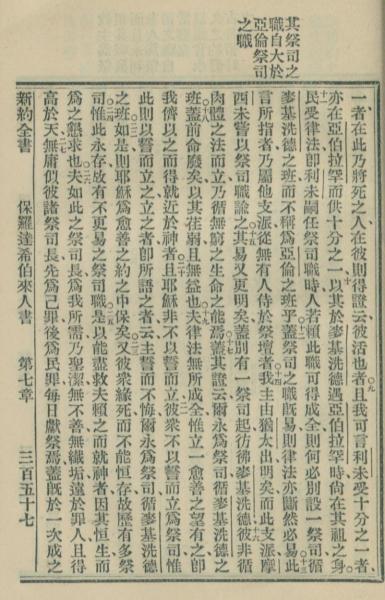 其祭司之
職自大於
亞倫祭司
之職
一者在此乃將死之人在彼則得證云彼活也者且我可言利未受十分之一者
亦在亞伯拉罕而供十分之一以其於麥基洗德遇亞伯拉罕時尚在其祖之身
民受律法卽利未嗣任祭司職時人若賴此職可得成全則何必別設一祭司循
麥基洗德之班而不稱爲亞倫之班乎蓋祭司之職旣易則律法亦斷然必易此
言所指者乃屬他支派從無有人侍於祭壇者我主由猶太出明矣而此支派摩
西未嘗以祭司職諭之其易又更明矣蓋別有一祭司起彷彿麥基洗德彼非循
肉體之法而立乃循無窮之生命之能焉蓋其證云爾永爲祭司循麥基洗德之
班蓋前命廢矣以其荏弱且無益也夫律法無所成全惟立一愈善之望有之卽
我儕以之而得就近於神者且耶穌非不以誓而立彼衆不以誓而立爲祭司惟
此則以誓而立之立之者卽所語之者云主誓而不悔爾永爲祭司循麥基洗德
之班如是則耶穌爲愈善之約之中保矣又彼衆緣死而不能恒存故歷有多祭
司惟此永存故有不更易之祭司職是以能盡救夫賴之而就神者因其恒生而
爲之懇求也夫如此之祭司長爲我所需乃聖潔無不善無織垢遠於罪人且得
高於天無庸似彼諸祭司長先爲己罪後爲民罪每日獻祭焉蓋旣於一次成之
新約全書
保羅達希伯來人書
第七章
三百五十七